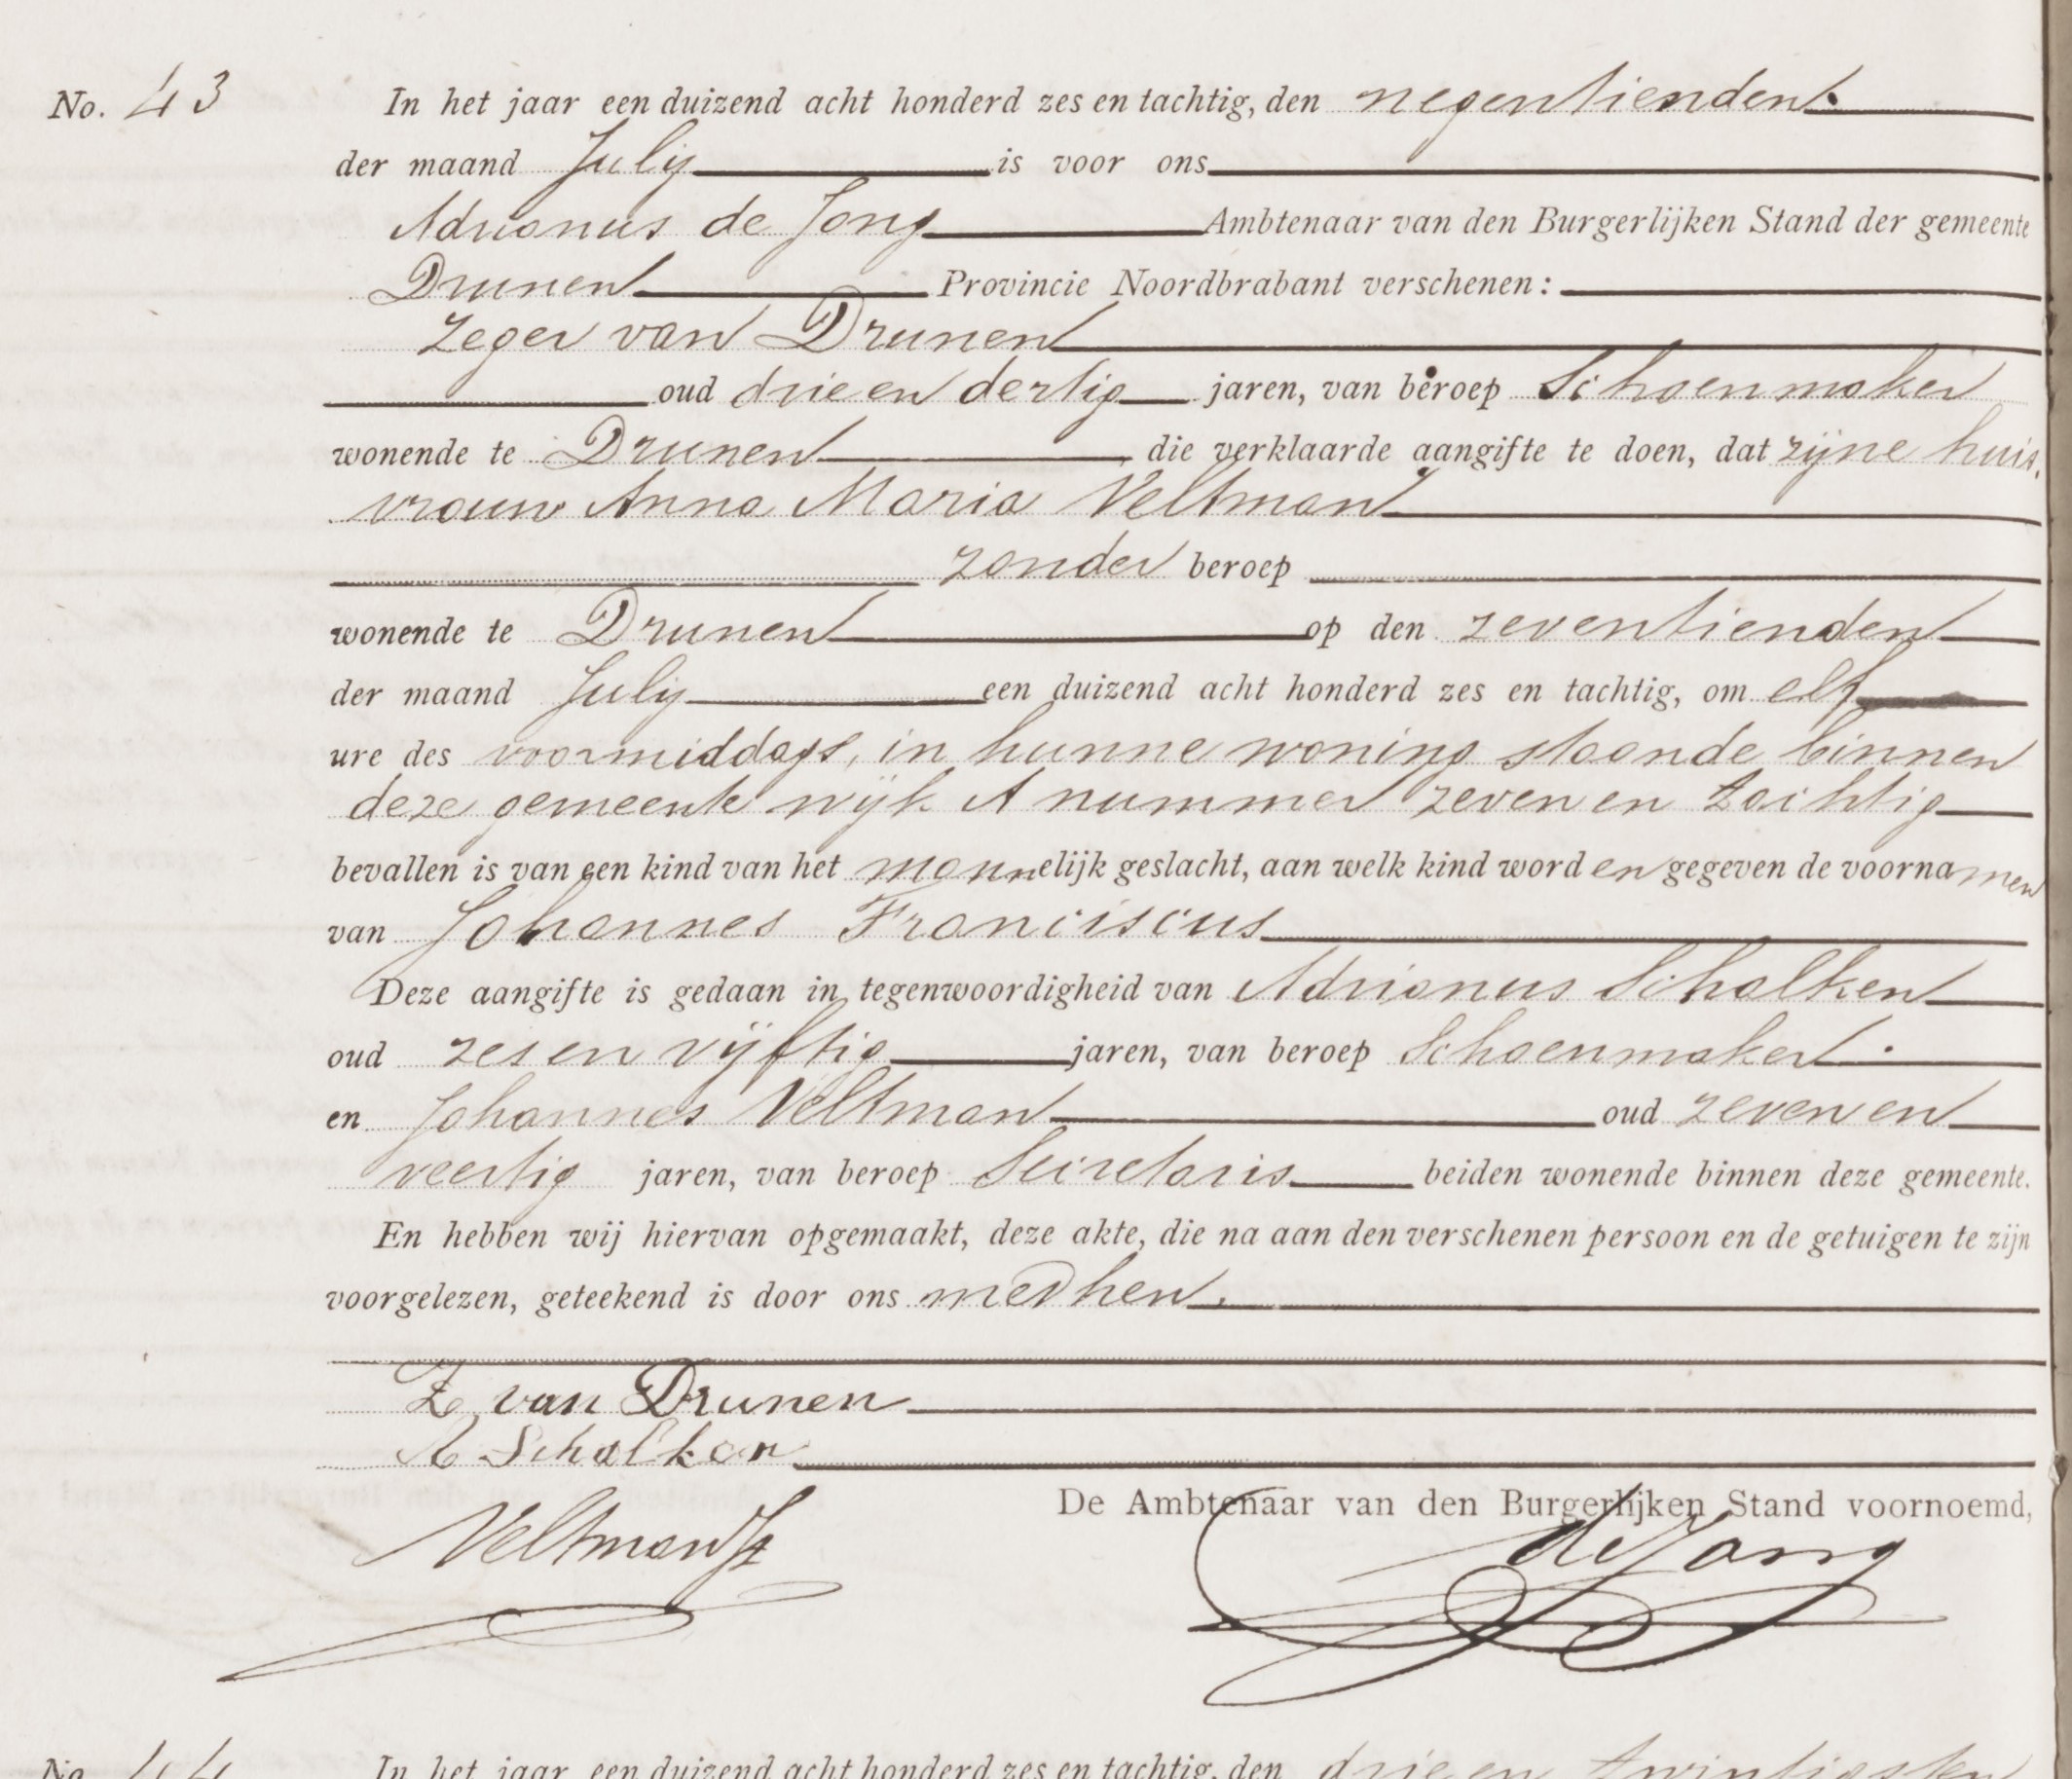 No. 43 In het jaar een duizend acht honderd zes en tachtig, den negentienden
der maand Julij is voor ons
Adrianus de Jong Ambtenaar van den Burgerlijken Stand der gemeente
Drunen Provincie Noordbrabant verschenen:
Zeger van Drunen
oud drie en dertig jaren, van beroep Schoenmaker
wonende te Drunen die verklaarde aangifte te doen, dat zijne huis,
vrouw Anna Maria Veltman
zonder beroep
wonende te Drunen op den zeventienden
der maand Julij een duizend acht honderd zes en tachtig, om elf
ure des voormiddags, in hunne woning staande binnen
deze gemeente wijk A nummer zeven en tachtig
bevallen is van een kind van het mannelijk geslacht, aan welk kind worden gegeven de voornamen
van Johannes Franciscus
Deze aangifte is gedaan in tegenwoordigheid van Adrianus Schalken
oud zes en vijftig jaren, van beroep Schoenmaker.
en Johannes Veltman oud zeven en
veertig jaren, van beroep Secretaris beiden wonende binnen deze gemeente.
En hebben wij hiervan opgemaakt, deze akte, die na aan den verschenen persoon en de getuigen te zijn
voorgelezen, geteekend is door ons med hen.
Z van Drunen
A Schalken
Veltman
De Ambtenaar van den Burgerlijken Stand voornoemd,
de Jong
No. 44 In het jaar een duizend acht honderd zes en tachtig, den drie en twintigsten